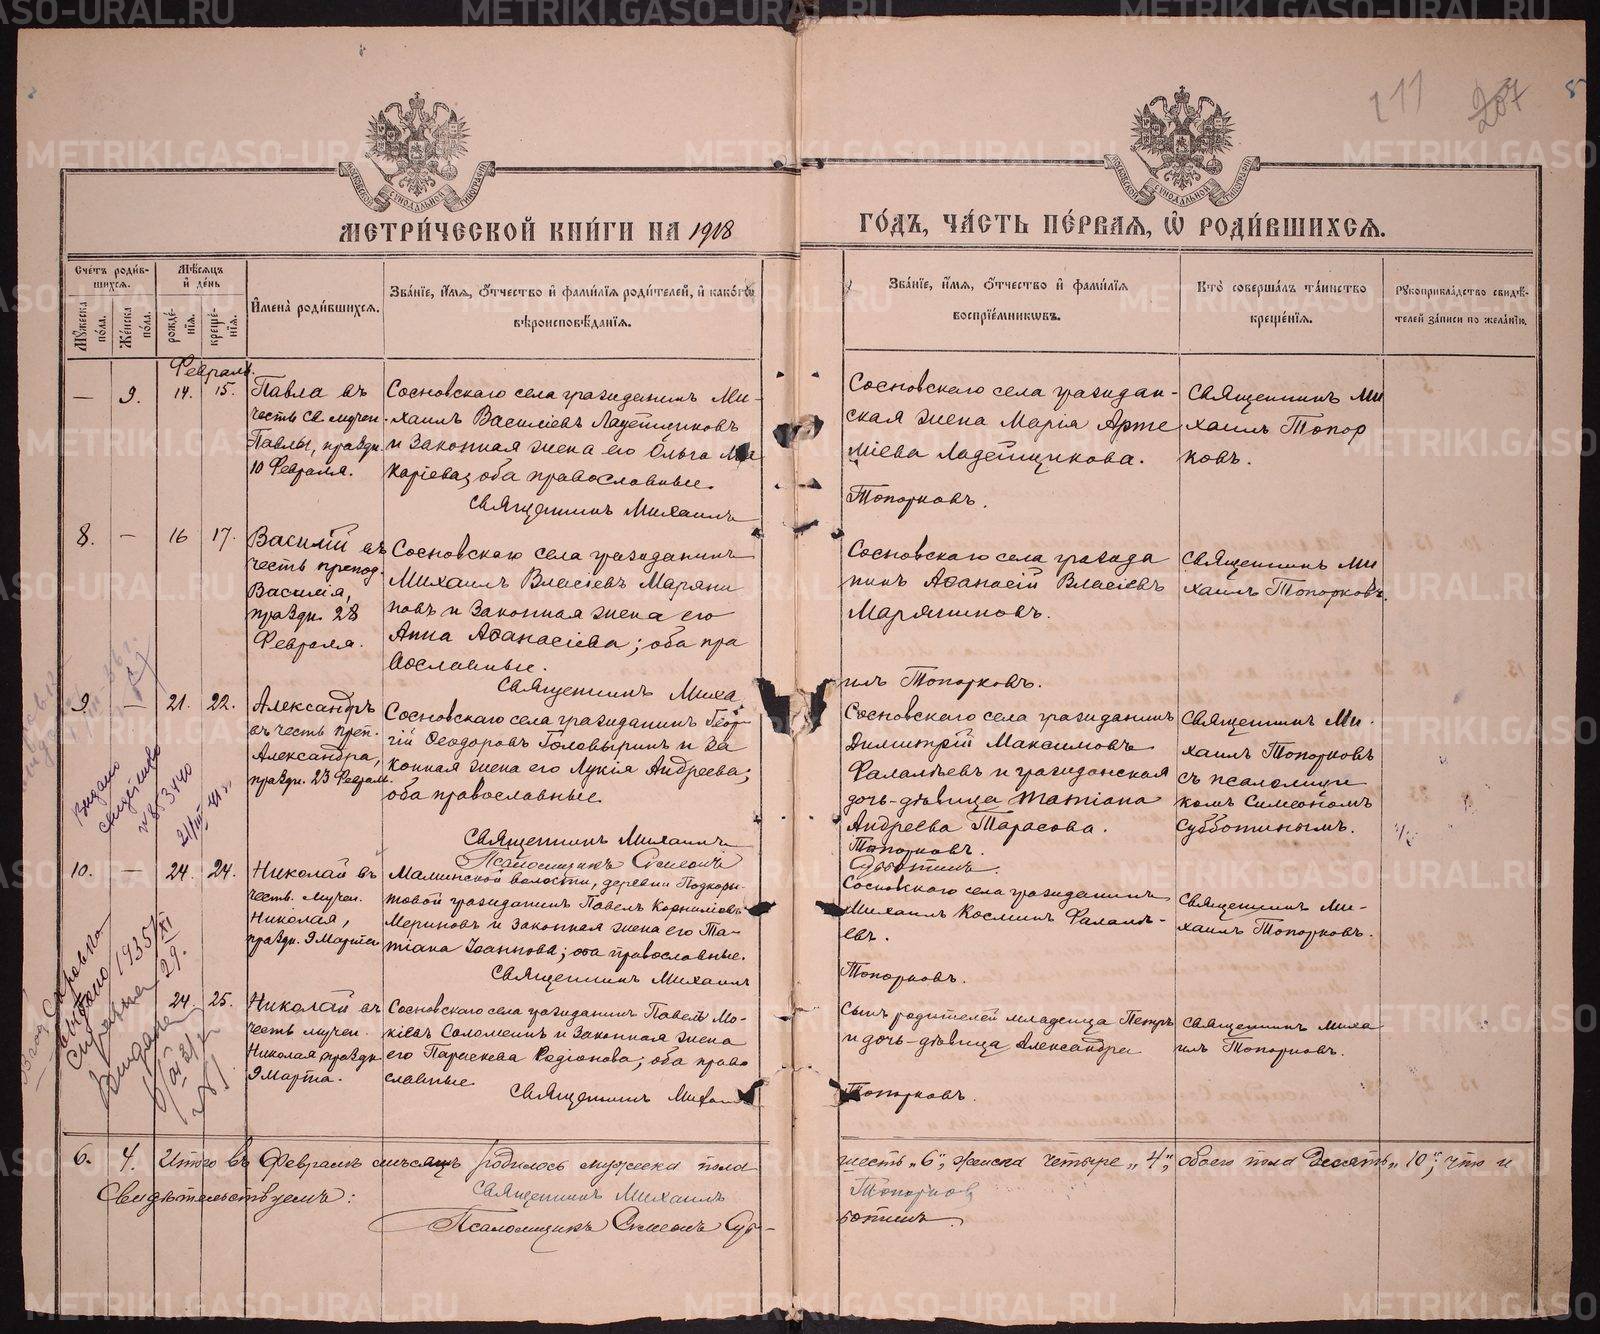 METRIKI.GASO-URAL.RU
МЕТРИ́ЧЕСКОЙ КНИ́ГИ НА 1918
ГО́ДЪ, ЧА́СТЬ ПЕ́РВАЯ, Ѡ РОДИ́ВШИХСЯ.
Сче́тъ роди́в-
шихся.
Му́жеска по́ла.
Же́нска по́ла.
Мѣ́сяцъ и де́нь
рожде́-нїя.
креще́-нїя.
Имена̀ роди́вшихся.
Зва́нїе, и́мя, о́тчество и фами́лїя роди́телей, и како́гѡ
вѣроисповѣ́данїя.
Зва́нїе, и́мя, о́тчество и фами́лїя
воспрїе́мникѡвъ.
Кто̀ соверша́лъ та́инство
креще́нїя.
Рꙋкоприкла́дство свидѣ́-
телей за́писи по жела́нїю.
211
207
Февраль.
— 9. 14. 15.
Павла въ
честь св. мучен.
Павлы, праздн.
10 Февраля.
Сосновскаго села гражданинъ Ми-
хаилъ Василіевъ
и законная жена его Ольга Ма
каріева; оба православные.
Священникъ Михаилъ
Сосновскаго села граждан-
ская жена Марія Арте
міева Ладейщикова.
Топорковъ.
Священникъ Ми
хаилъ Топор
ковъ.
8. — 16 17.
Василій въ
честь препод.
Василія,
праздн. 28
Февраля.
Сосновскаго села гражданинъ
Михаилъ Власіевъ Маряни
новъ и законная жена его
Анна Аѳанасіева; оба пра
вославные.
Священникъ Миха
Сосновскаго села гражда
нинъ Аѳанасій Власіевъ
Маряниновъ.
илъ Топорковъ.
Священникъ Ми
хаилъ Топорковъ.
9. — 21. 22.
Александръ
въ честь преп.
Александра,
праздн. 23 Феврал.
Сосновскаго села гражданинъ Геор-
гій Ѳеодоровъ Головыринъ и за
конная жена его Лукія Андреева;
оба православные.
Священникъ Михаилъ
Псаломщикъ Симеонъ
Сосновскаго села гражданинъ
Димитрій Максимовъ
Фалалѣевъ и гражданская
дочь-дѣвица Татіана
Андреева Тарасова.
Топорковъ.
Субботинъ.
Священникъ Ми-
хаилъ Топорковъ
съ псаломщи
комъ Симеономъ
Субботинымъ.
Выдано
свидѣтельство
21/VII 41 г.
10. — 24. 24.
Николай въ
честь. мучен.
Николая,
праздн. 9 Марта
Маминской волости, деревни Подкоры-
товой гражданинъ Павелъ Корниліевъ
Мериновъ и законная жена его Та-
тіана Іоаннова; оба православные.
Священникъ Михаилъ
Сосновскаго села гражданинъ
Михаилъ Косминъ Фалалѣ-
евъ.
Топорковъ.
Священникъ Ми-
хаилъ Топорковъ.
24. 25.
Николай въ
честь мучен.
Николая праздн
9 Марта.
Сосновскаго села гражданинъ Павелъ Мо-
кіевъ Соломеинъ и законная жена
его Параскева Родіонова; оба право
славные.
Священникъ Михаи
Сынъ родителей младенца Петръ
и дочь-дѣвица Александра
Топорковъ.
Священникъ Миха
илъ Топорковъ.
справка
выдано 1935
6. 4. Итого въ Февралѣ мѣсяцѣ родилось мужеска пола
шесть „6", женска четыре „4", обоего пола десять „10", что и
свидѣтельствуемъ:
Священникъ Михаилъ
Топорков
Псаломщикъ Симеонъ Суб-
ботинъ.